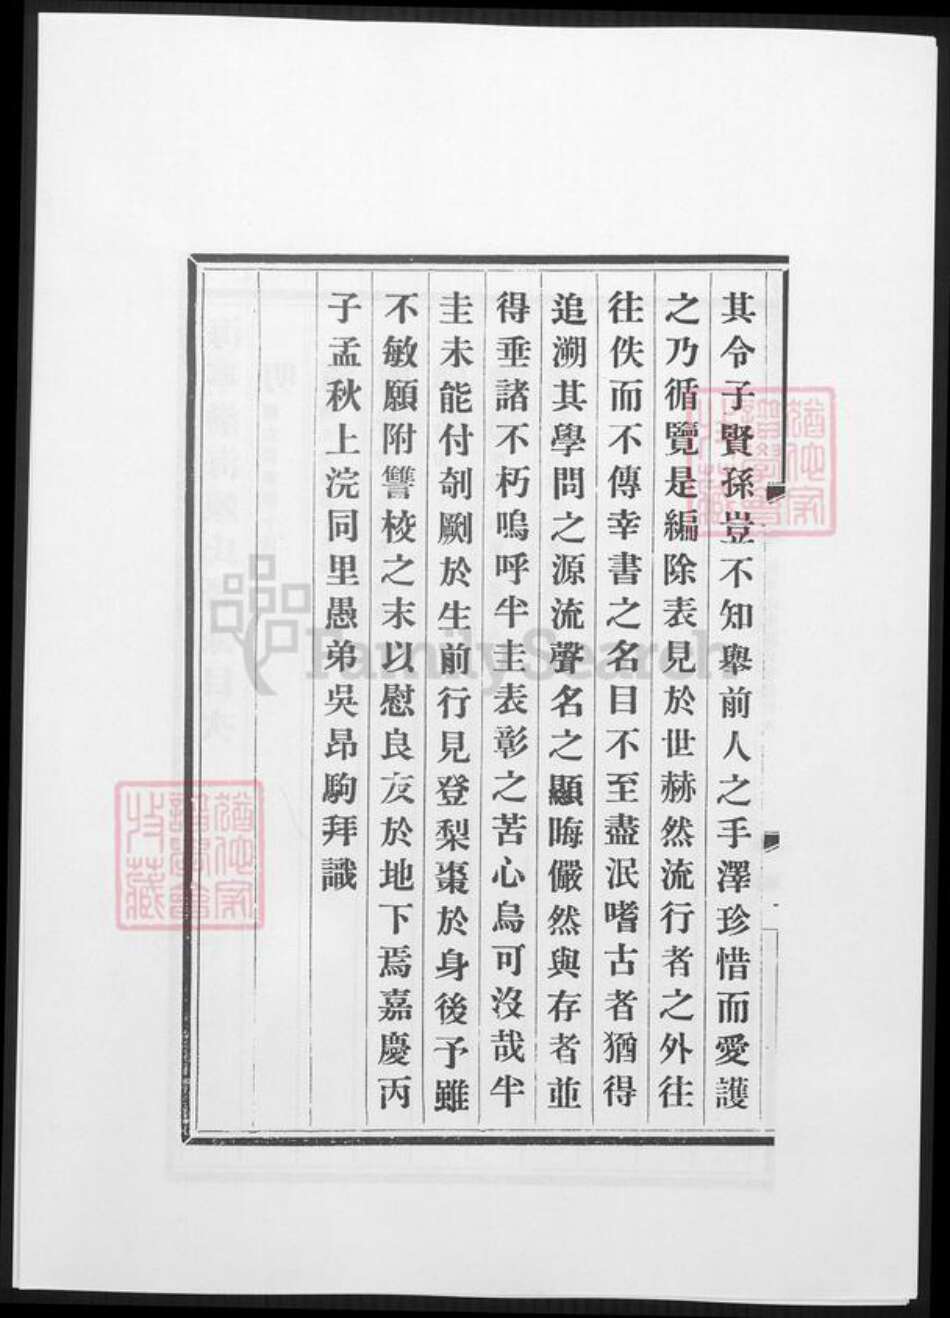 其令子賢孫豈不知舉前人之手澤珍惜而愛護
之乃循覽是編除表見於世赫然流行者之外往
往佚而不傳幸書之名目不至盡泯嗜古者猶得
追溯其學問之源流聲名之顯晦儼然與存者並
得垂諸不朽嗚呼半圭表彰之苦心烏可沒哉半
圭未能付剞劂於生前行見登梨棗於身後予雖
不敏願附讐校之末以慰良友於地下焉嘉慶丙
子孟秋上浣同里愚弟吳昂駒拜識
猶他家
譜學會
收藏
猶他家
譜學會
收藏
FamilySearch